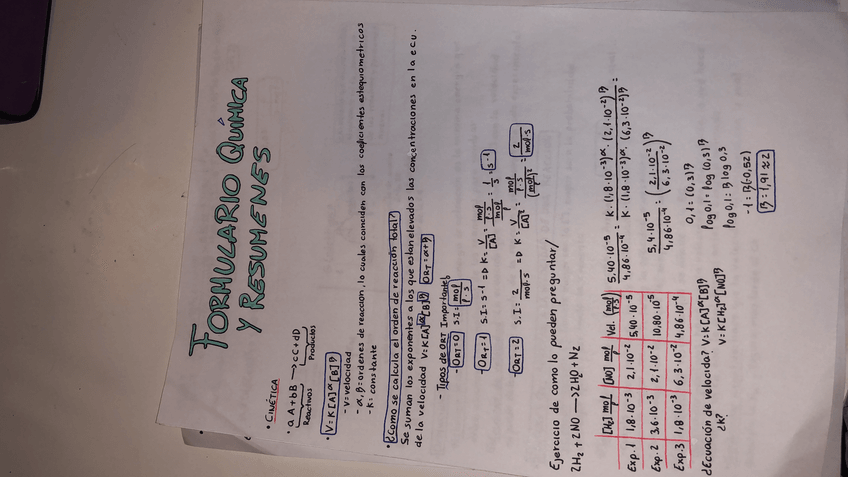 FORMULARIO QUÍMICA
Y RESUMENES
• CINÉTICA
• aA+bB → cC+dD
Reactivos Productos
• V=K[A]^α[B]^β
- V=velocidad
- α,β=ordenes de reacción, lo cuales coinciden con los coeficientes estequiometricos
- K= constante
• ¿Como se calcula el orden de reacción total?
Se suman los exponentes a los que estan elevados las concentraciones en la ecu.
de la velocidad V=K[A]^α[B]^β ORT=α+β
- Tipos de ORT Importantes
- ORT=0 S.I= mol/l·s
- ORT=1 S.I=s-1 =D K= V/[A] = mol/l·s / mol/l = 1/s = s-1
- ORT=2 S.I= l/mol·s =D K= V/[A] = mol/l·s / (mol/l)² = l/mol·s
Ejercicio de como lo pueden preguntar/
2H₂+2NO → 2H₂O+N₂
[H₂] mol/l [NO] mol/l Vel. (mol/l·s)
Exp. 1 1,8·10⁻³ 2,1·10⁻² 5,40·10⁻⁵
Exp. 2 3,6·10⁻³ 2,1·10⁻² 10,80·10⁻⁵
Exp. 3 1,8·10⁻³ 6,3·10⁻² 4,86·10⁻⁴
¿Ecuación de velocida? V=K[A]^α[B]^β
¿K? V=K[H₂]^α[NO]^β
5,40·10⁻⁵/4,86·10⁻⁴ = K·(1,8·10⁻³)^α·(2,1·10⁻²)^β / K·(1,8·10⁻³)^α·(6,3·10⁻²)^β =
5,4·10⁻⁵/4,86·10⁻⁴ = (2,1·10⁻²/6,3·10⁻²)^β
0,1=(0,3)^β
log 0,1=log (0,3)^β
log 0,1=β log 0,3
-1=β(-0,52)
β=1,91≈2